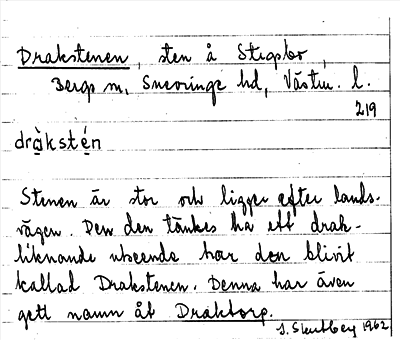 Drakstenen, sten å Stigsbo,
Bergs sn, Snevringe hd, Västm. l.
219
dràkstén
Stenen är stor och ligger efter lands-
vägen. Den den tänkes ha ett drak-
liknande utseende har den blivit
kallad Drakstenen. Denna har även
gett namn åt Draktorp.
1962